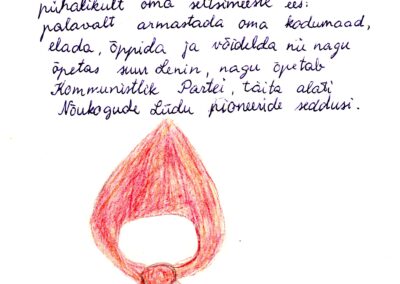 pühalikult oma seltsimeeste ees:
palavalt armastada oma kodumaad,
elada, õppida ja võidelda nii nagu
õpetas suur Lenin, nagu õpetab
Kommunistlik Partei, täita alati
Nõukogude Liidu pioneeride seddusi.